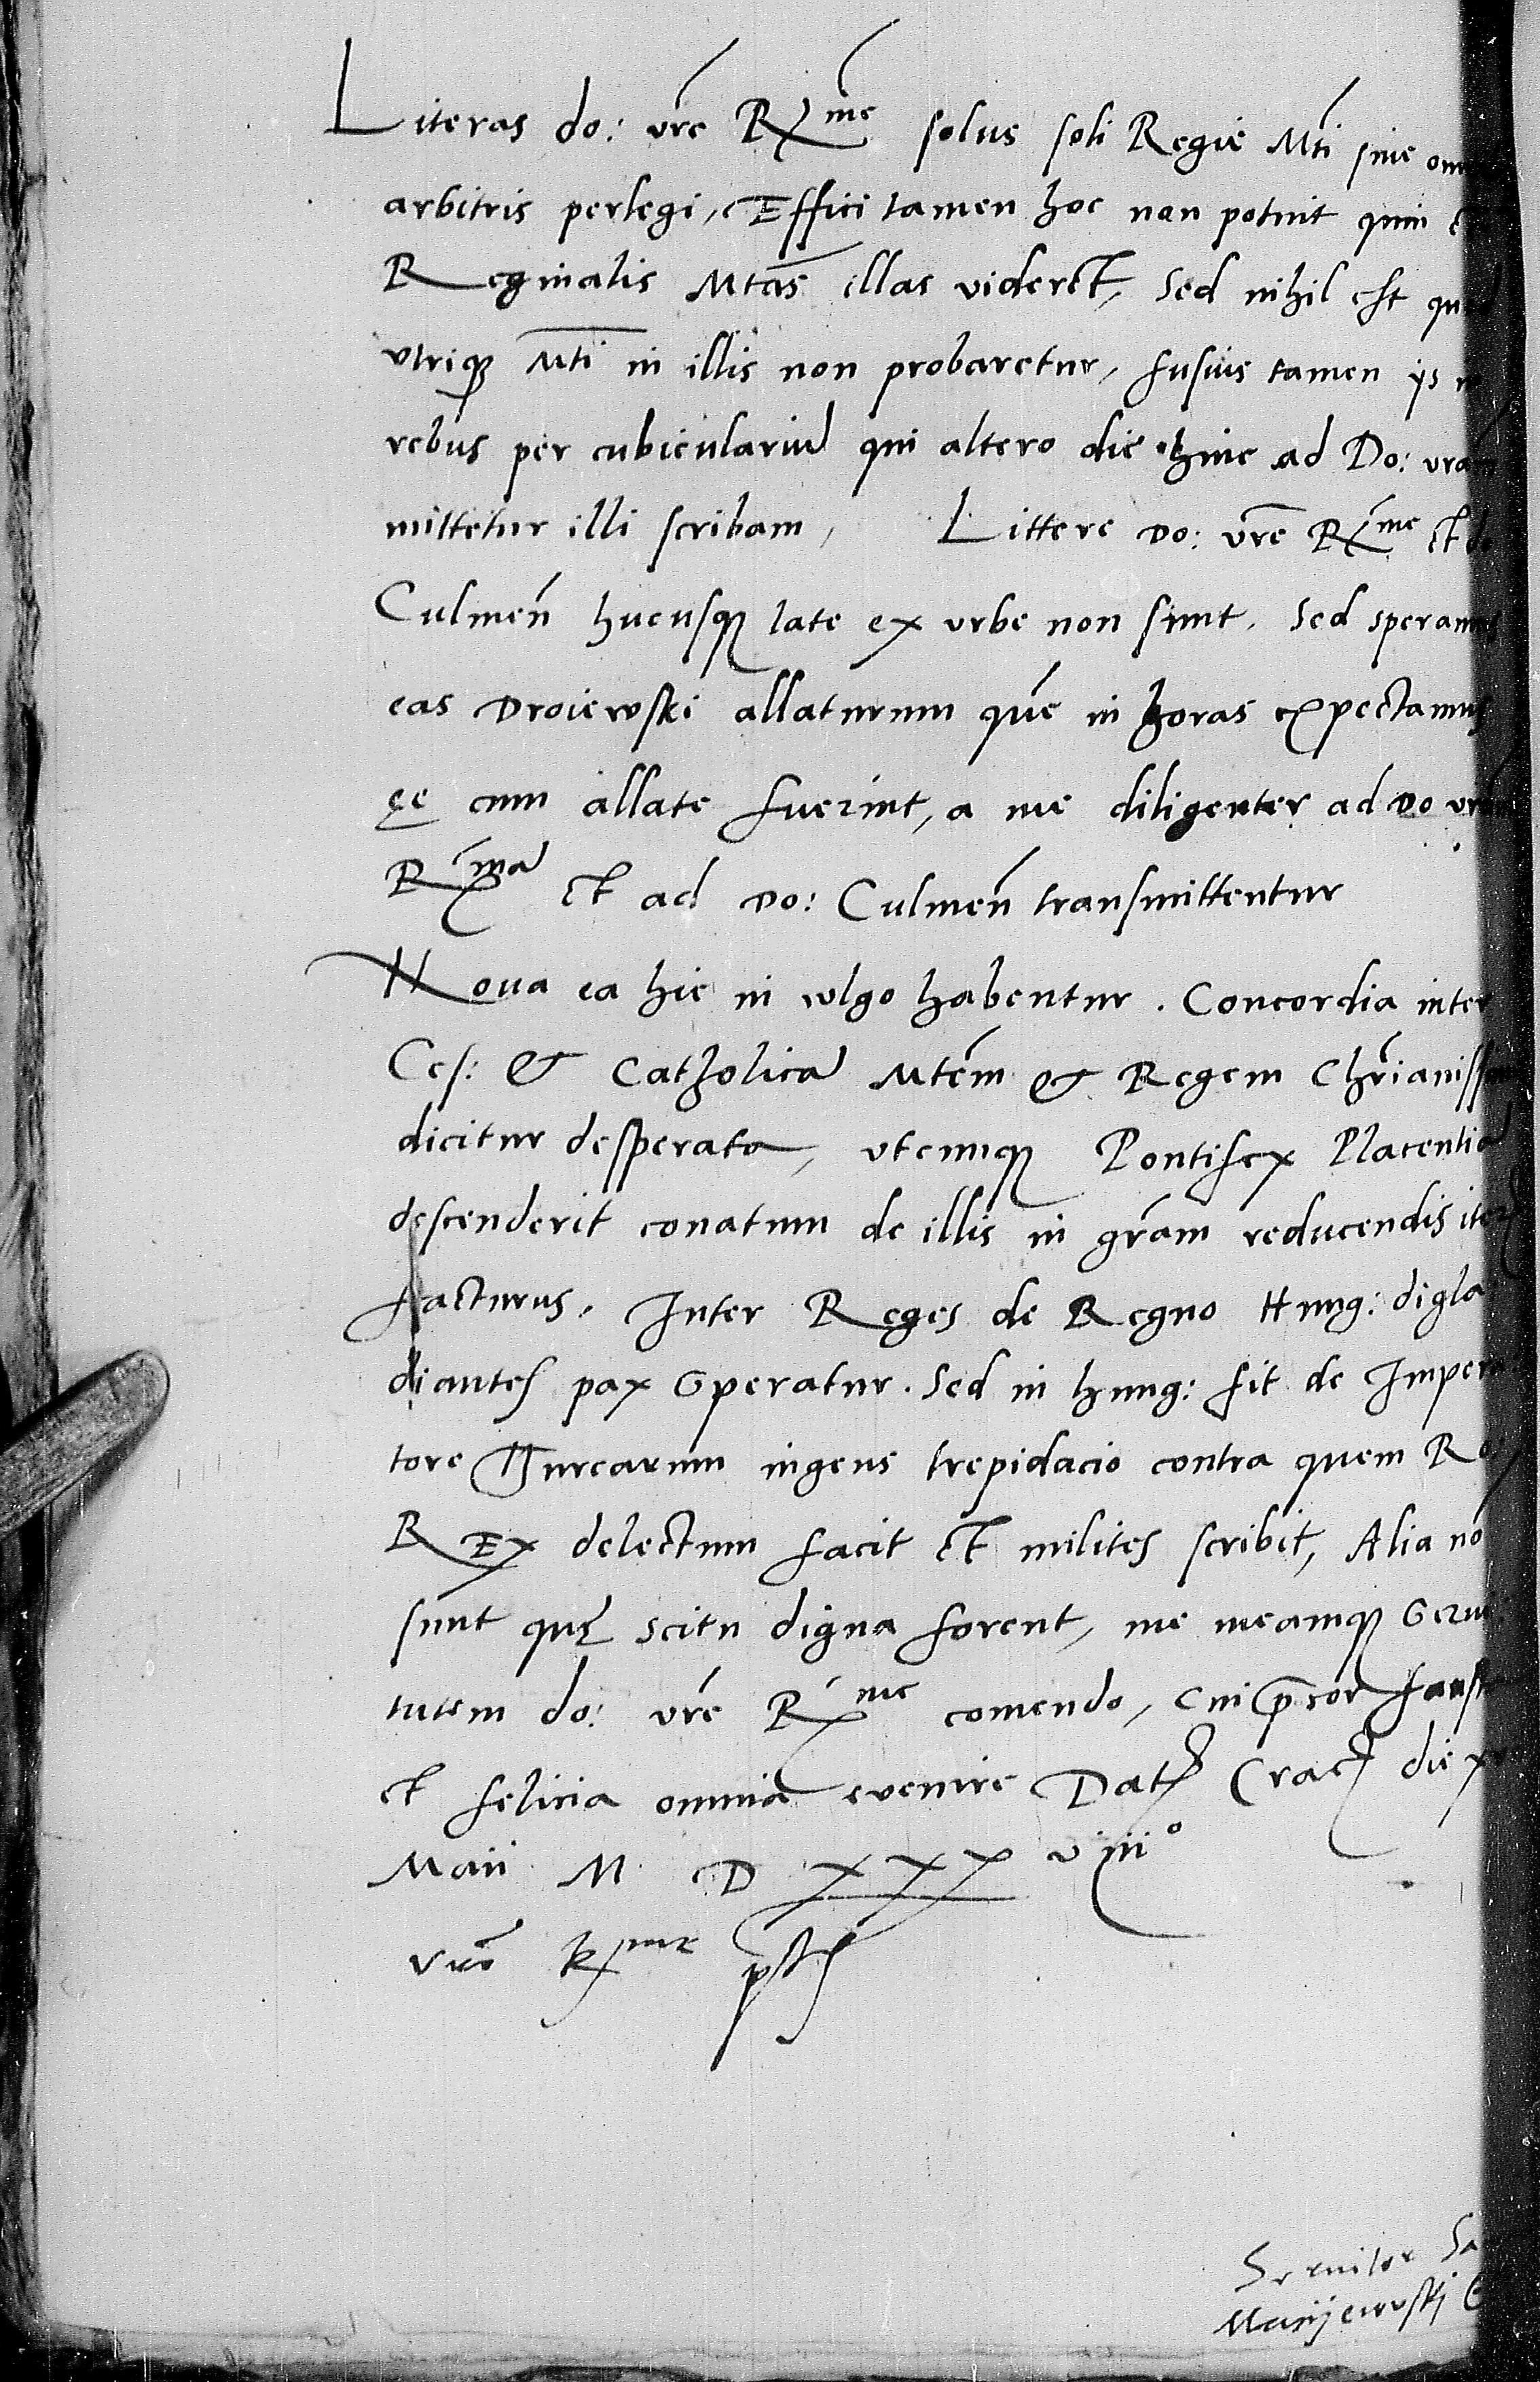 Literas do: vre Rxme solus soli Regie Mti sine
arbitris perlegi, Effici tamen hoc non potuit quin
Reginalis Mtas illas videret, Sed nihil est quod
vtriq Mti in illis non probaretur, fusius tamen ijs
rebus per cubiculariu qui altero die hinc ad Do: vram
mittetur illi scribam, Littere Do: vre Rxme et
Culmen hucusq late ex vrbe non sunt. Sed speramus
eas Droiewski allaturum que in horas expectamus
ęe cum allate fuerint, a me diligenter ad Do vram
Rma et ad Do: Culmen transmittentur
Noua ea hic in wlgo habentur. Concordia inter
Ces: & Catholica Mtem & Regem Chrianiss
dicitur desperata, vtcunq Pontifex Placentia
descenderit conatum de illis in gram reducendis
facturus. Inter Reges de Regno Hung: digla
diantes pax speratur. Sed in hung: fit de Impera
tore Thurcarum ingens trepidacio contra quem Ro
REx delectum facit et milites scribit, Alia no
sunt quę scitu digna forent, me meamq serui
tutem do: vre Rxme comendo, Cui pcor fausta
et felicia omnia evenire Dat Crac die
Maii M D XXX viii°
Servitor